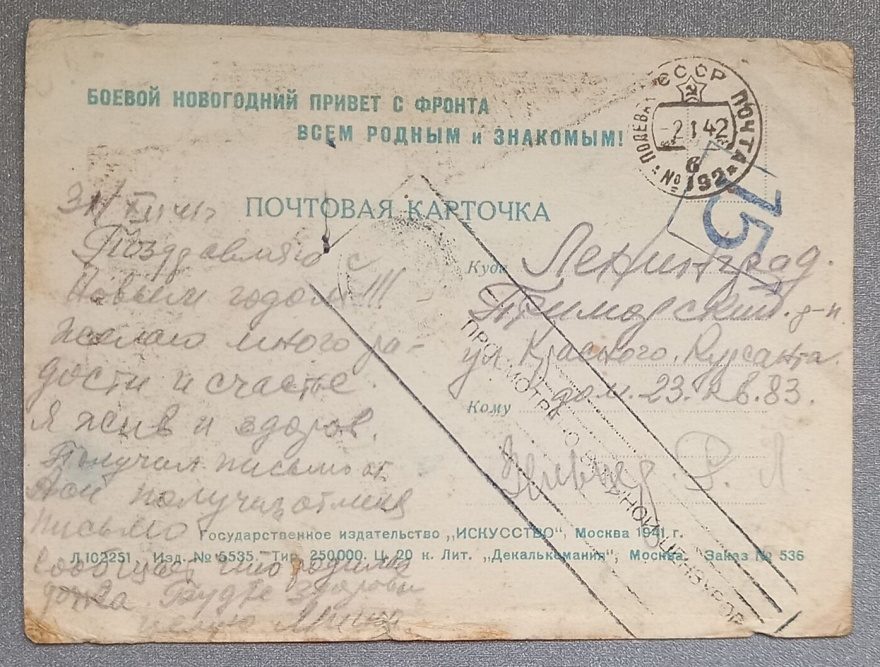 БОЕВОЙ НОВОГОДНИЙ ПРИВЕТ С ФРОНТА
ВСЕМ РОДНЫМ и ЗНАКОМЫМ!
СССР
ПОЛЕВАЯ ПОЧТА
-2 1 42
6
№ 192
15
ПОЧТОВАЯ КАРТОЧКА
Поздравляю с
Новым годом!!!
желаю много ра-
дости и счастье
я жив и здоров.
Получил письмо от
получил от меня
письмо
Будте здоровы
целую
Куда Ленинград.
Приморский. р-н
ул Красного. Курсанта
дом. 23. кв. 83.
Кому
Р. Л
ПРОСМОТРЕНО ВОЕННОЙ ЦЕНЗУРОЙ
Государственное издательство „ИСКУССТВО“, Москва 1941 г.
Л102251. Изд. № 5535. Тир. 250000. Ц. 20 к. Лит. „Декалькомания“, Москва. Заказ № 536